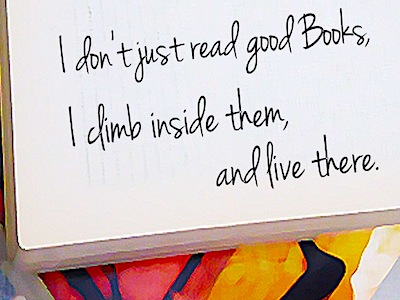 I don't just read good Books,
I climb inside them,
and live there.